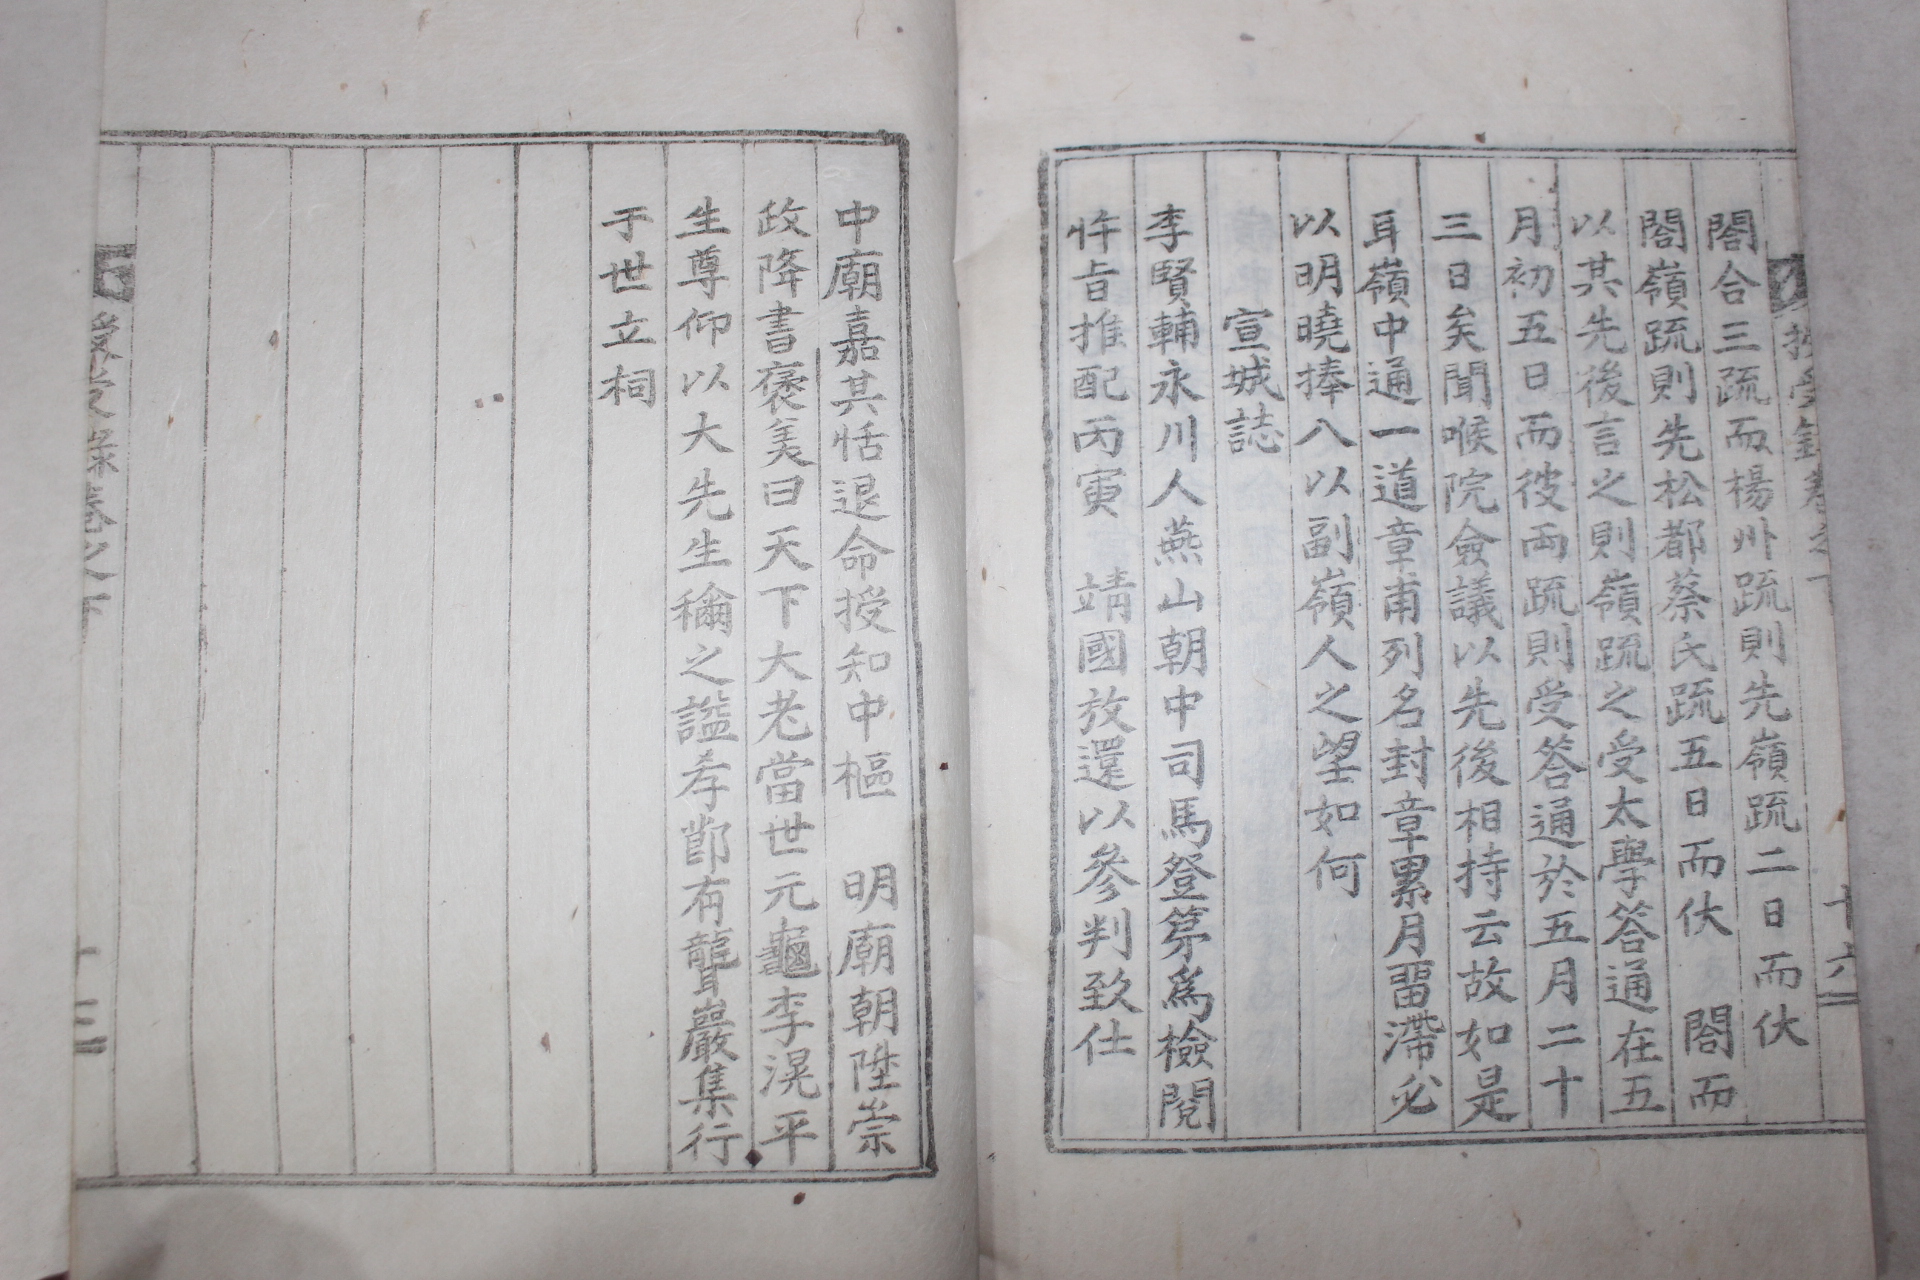 授受錄卷之下
十六
閤合三疏而楊州疏則先嶺疏二日而伏
閤嶺疏則先松都蔡氏疏五日而伏　閤而
以其先後言之則嶺疏之受太學答通在五
月初五日而彼兩疏則受答通於五月二十
三日矣聞喉院僉議以先後相持云故如是
耳嶺中通一道章甫列名封章累月留滯必
以明曉捧入以副嶺人之望如何
宣城誌
李賢輔永川人燕山朝中司馬登第爲檢閱
忤旨推配丙寅　靖國放還以參判致仕
中廟嘉其恬退命授知中樞　明廟朝陞崇
政降書褒美曰天下大老當世元龜李滉平
生尊仰以大先生稱之謚孝節有聾巖集行
于世立祠
授受錄卷之下